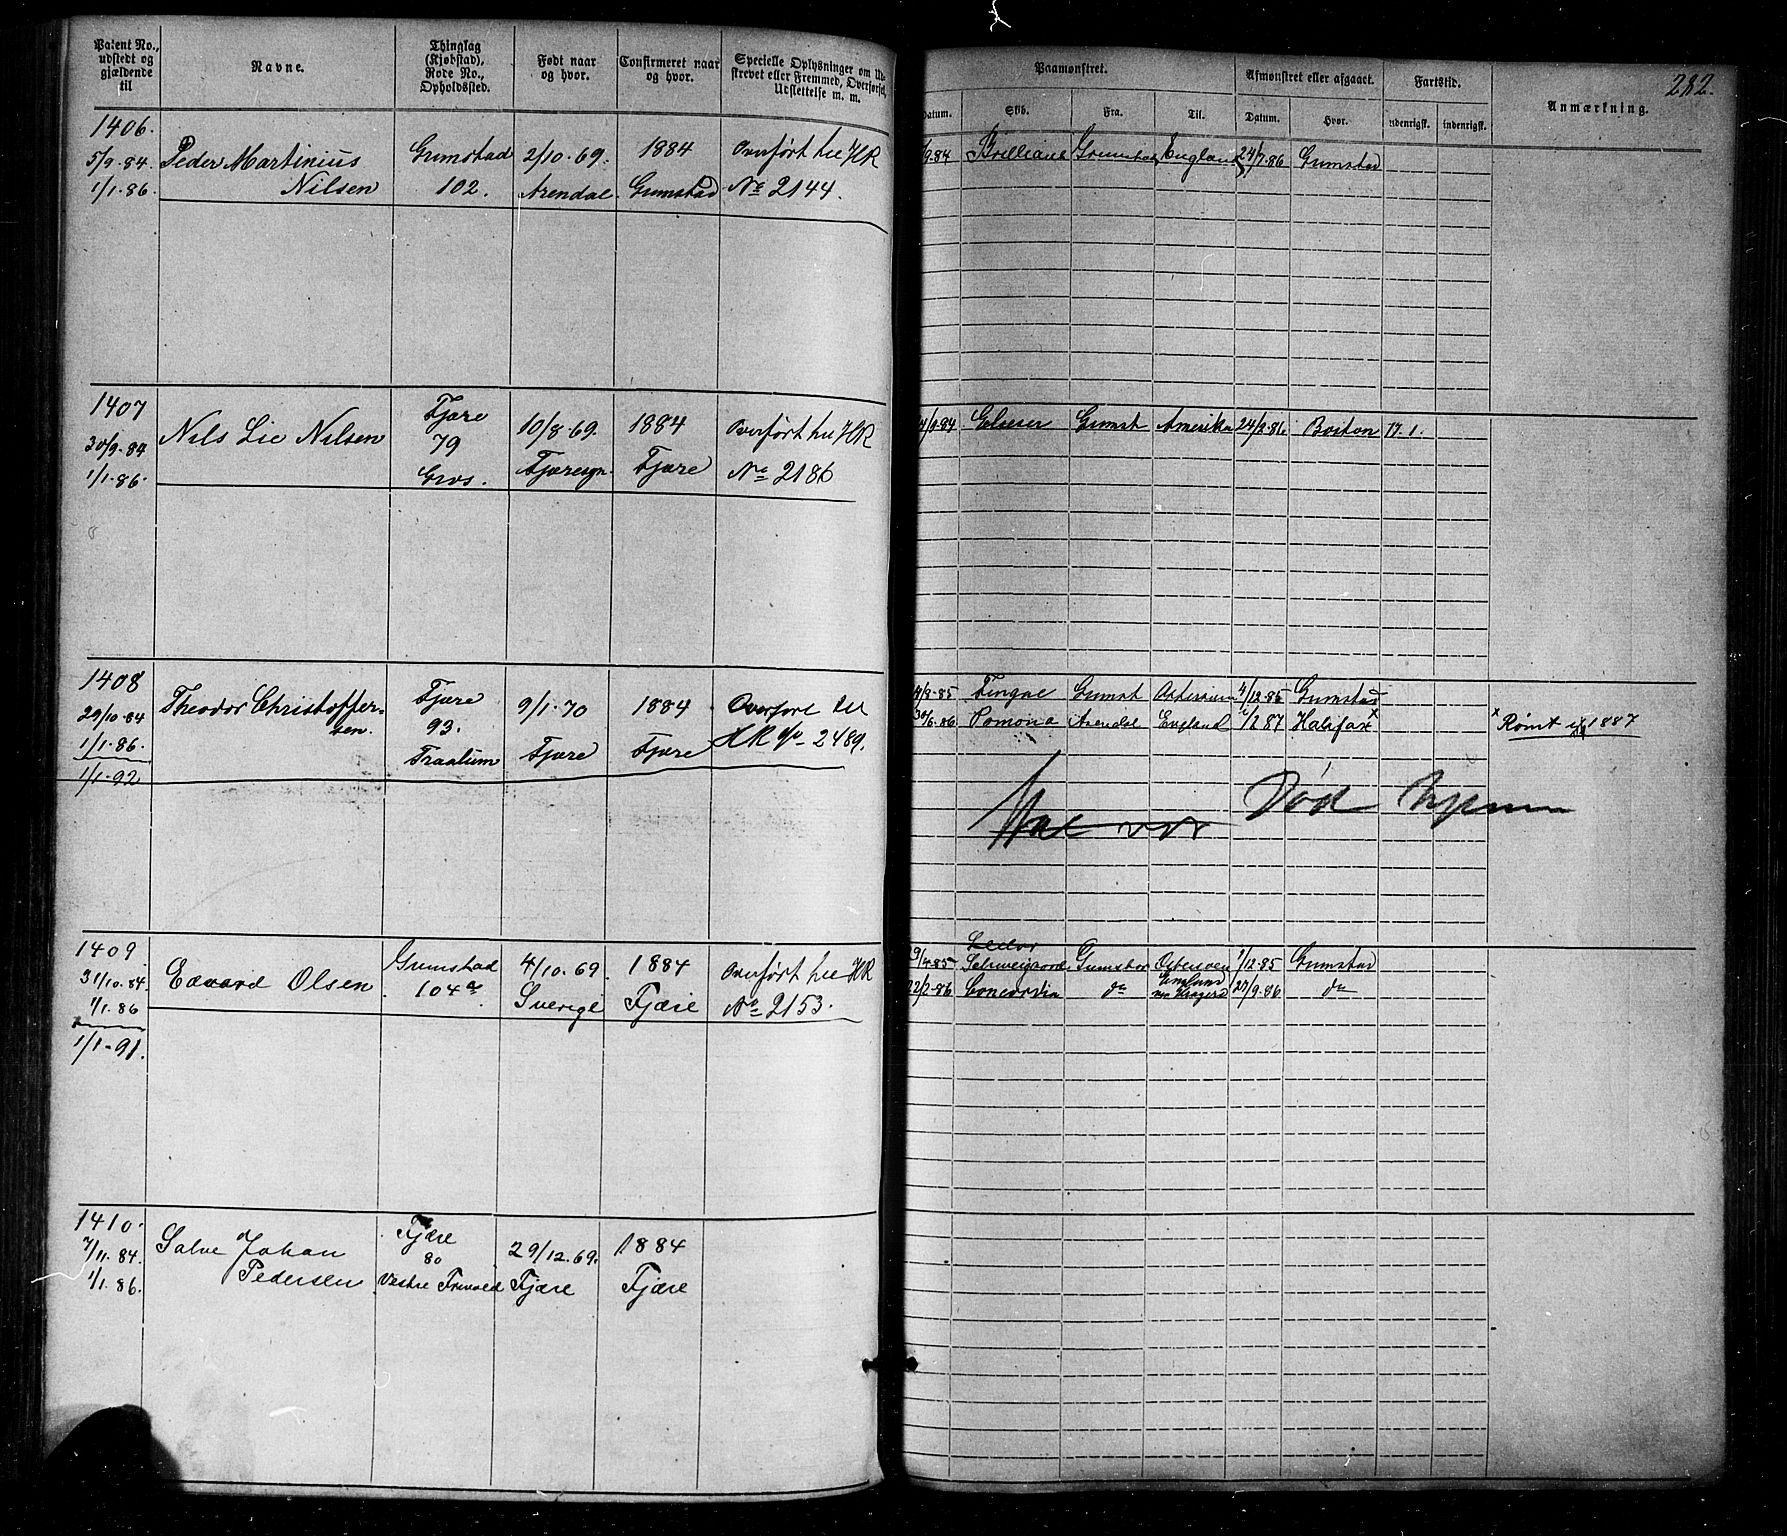 Patent No., udstedt og gjældende til
Navne.
Thinglag (Kjøbstad), Rode No., Opholdssted.
Født naar og hvor.
Confirmeret naar og hvor.
Specielle Oplysninger om Ud-
strevet eller Fremmed, Overførsel,
Udslettelse m. m.
Paamønstret.
Afmønstret eller afgaaet.
Fartstid.
Anmærkning.
282.
Datum.
Skib.
Fra.
Til.
Datum.
Hvor.
udenrigsk.
indenrigsk.
1406.
5/9.84
1/1.86.
Peder Martinius
Nilsen
Grimstad
102.
2/10.69.
Arendal
1884
Grimstad
Overført til HR
No 2144.
/9.84 Grimstad England 24/7.86 Grimstad
1407
30/9.84
1/1.86.
Nils Lie Nilsen
Fjære
79
Gros.
10/8.69.
Fjæresgn.
1884
Fjære
Overført til HR
No 2186
Grimst Amerika 24/2.86 Boston 17. 1.
1408
29/10.84
1/1.86.
1/1.92
Theodor Christoffer=
sen.
Fjære
93.
9/1.70
Fjære
1884
Fjære
HR No 2489.
4/8.85 Grimst 4/12.85 Grimstad
30/6.86 Pomona Arendal England 1/2 87 Halifax x
x Rømt 1887
Død
1409
31/10.84
1/1.86
1/1.91.
Edvard Olsen
Grimstad
104a
4/10.69
Sverige
1884
Fjære
Overført til HR
No 2153.
9/4.85 Grimstad Østersøen 1/12.85 Grimstad
22/2.86 Concordia do England 27/9.86 do
1410.
7/11.84.
1/1.86.
Salve Johan
Pedersen
Fjære
80
Vestre
29/12.69.
Fjære
1884
Fjære